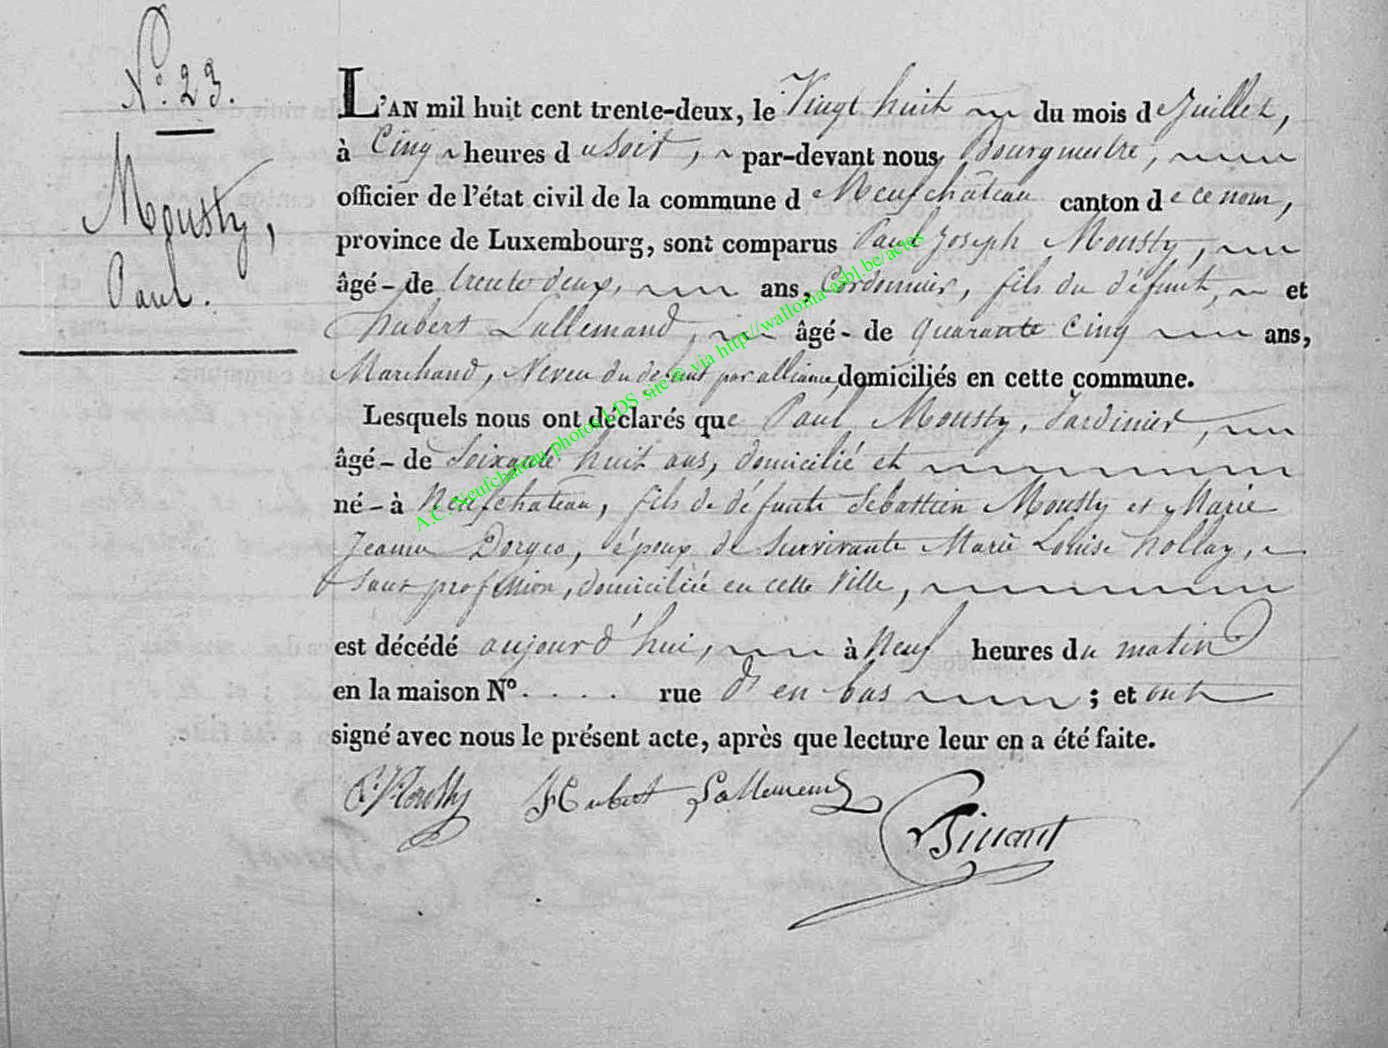 N.° 23.
Mousty,
Paul.
L'AN mil huit cent trente-deux, le Vingt huit du mois de Juillet,
à Cinq heures du Soir, par-devant nous, Bourgmestre,
officier de l'état civil de la commune de Neufchâteau canton de ce nom,
province de Luxembourg, sont comparus Paul Joseph Mousty,
âgé - de trente deux, ans, Cordonnier, fils du défunt, et
hubert Lallemand, âgé - de quarante Cinq ans,
Marchand, Neveu du défunt par alliance, domiciliés en cette commune.
Lesquels nous ont déclarés que Paul Mousty, Jardinier,
âgé - de Soixante huit ans, domicilié et
né - à Neufchateau, fils de défunts Sébastien Mousty et Marie
Jeanne Dorgeo, époux de Survivante Marie Louise hollay,
Sans profession, domiciliée en cette Ville,
est décédé aujourd'hui, à Neuf heures du matin
en la maison N°. . . . . rue d'en bas ; et ont
signé avec nous le présent acte, après que lecture leur en a été faite.
P. J. Mousty Hubert Lallemend
A.C. Neufchateau photos LDS site © via http://wallonia-asbl.be/actes